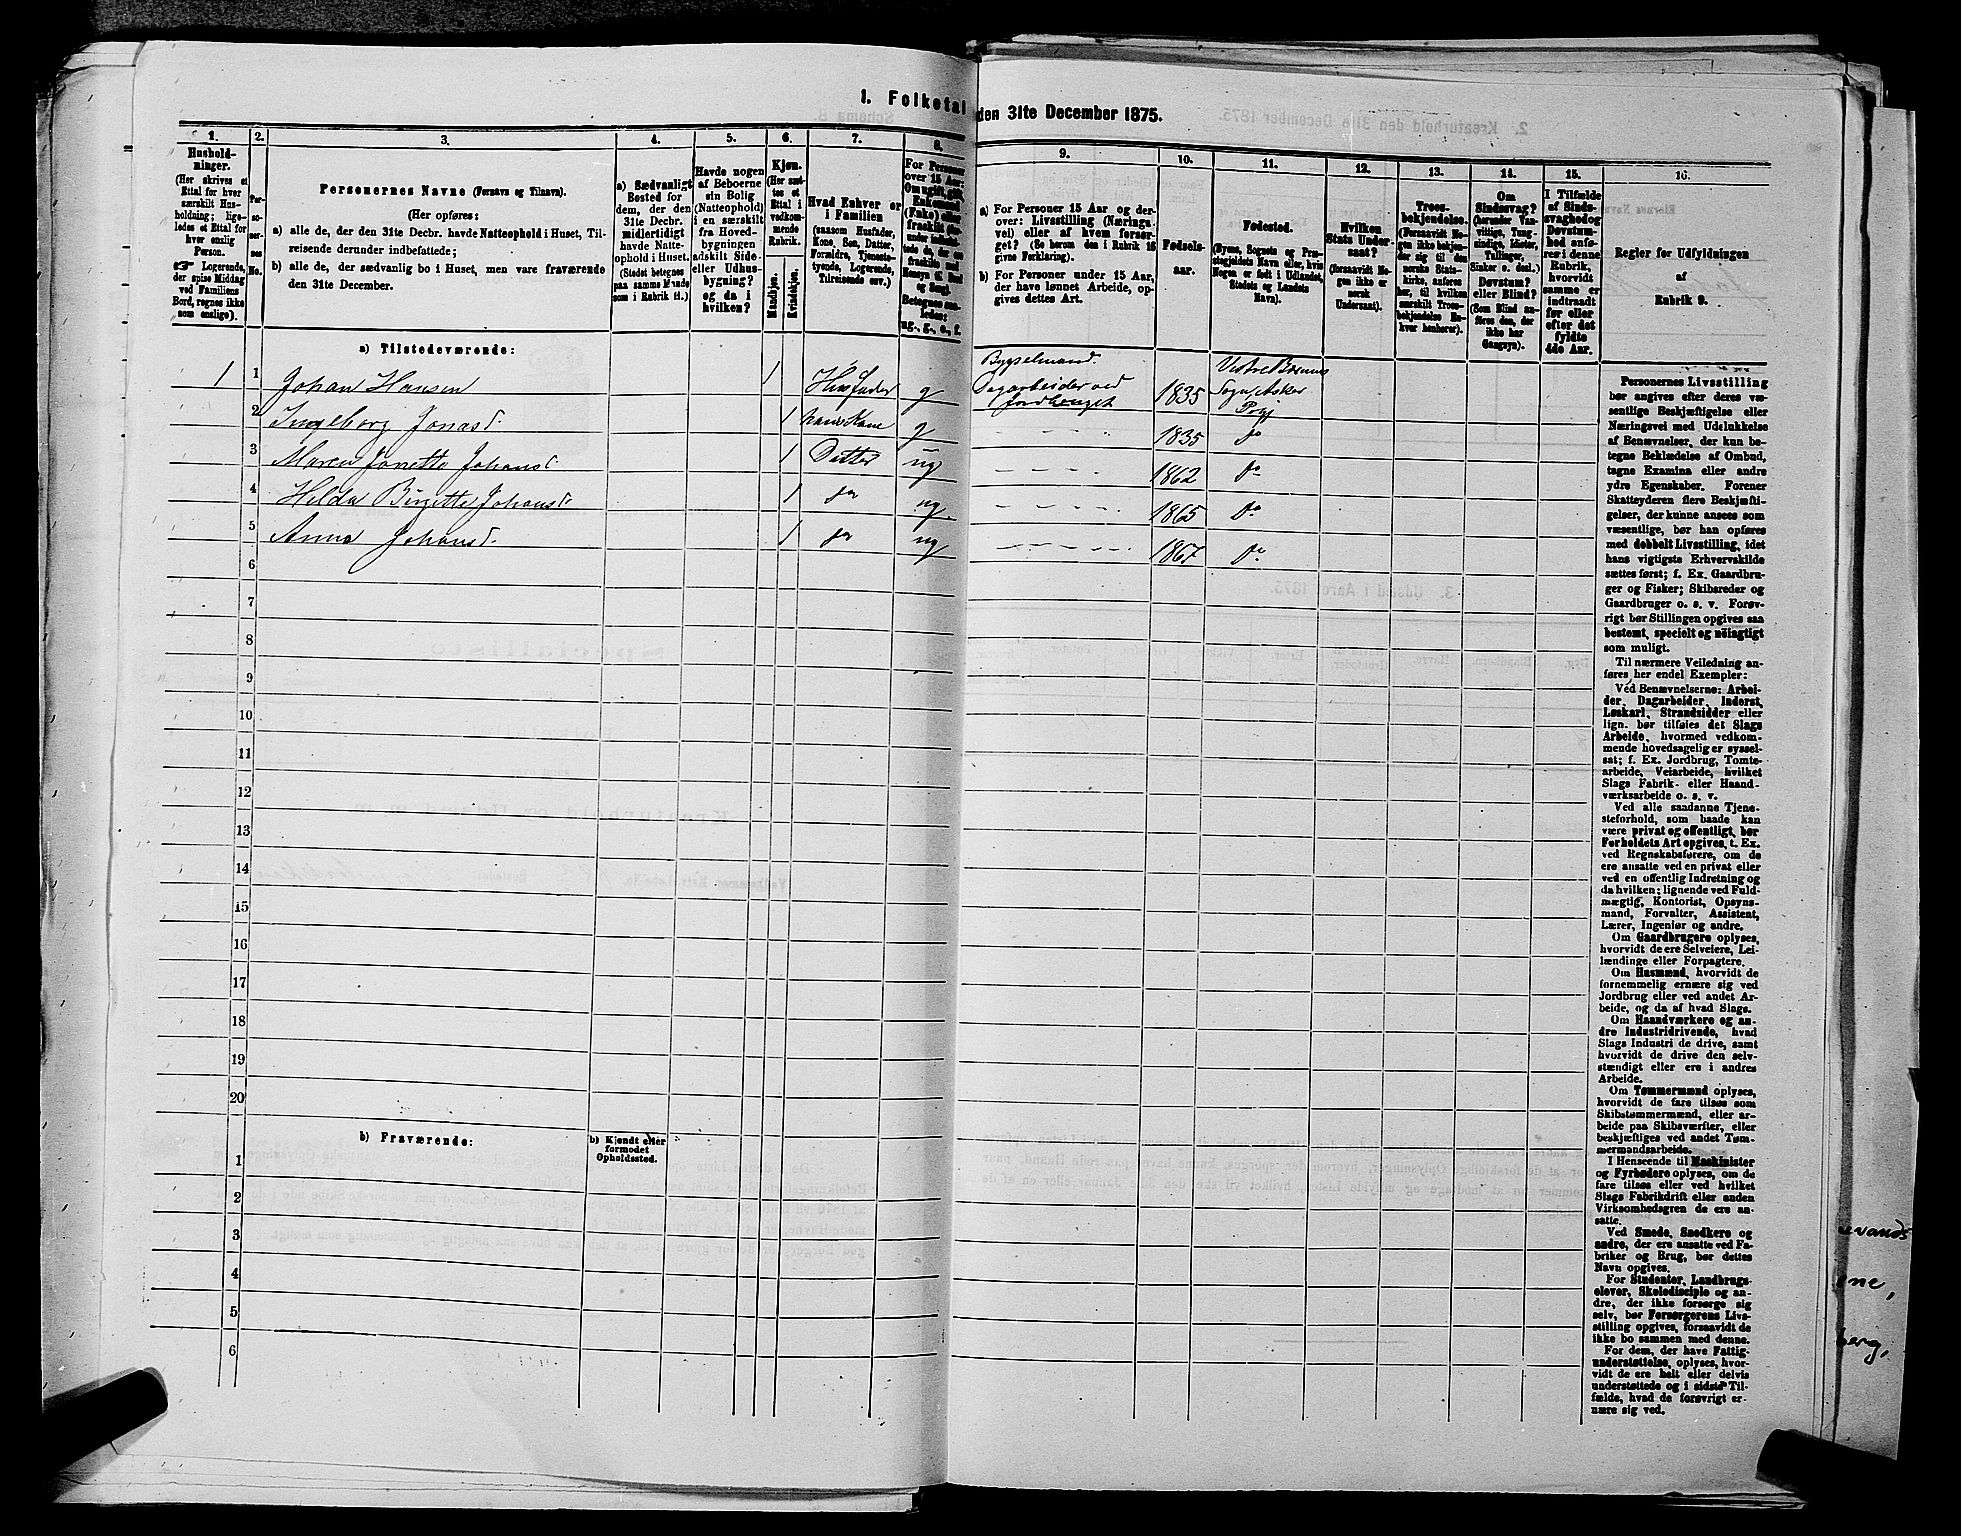 1. Folketal den 31te December 1875.
1.
Hushold-
ninger.
(Her skrives et
Ettal for hver
særskilt Hus-
holdning; lige-
ledes et Ettal for
hver enslig
Person.
☞ Logerende,
der spise Middag
ved Familiens
Bord, regnes ikke
som enslige).
2.
Per-
so-
ner-
nes
No.
3.
Personernes Navne (Fornavn og Tilnavn).
(Her opføres:
a) alle de, der den 31te Decbr. havde Natteophold i Huset, Til-
reisende derunder indbefattede;
b) alle de, der sædvanlig bo i Huset, men vare fraværende
den 31te December.
4.
a) Sædvanligt
Bosted for
dem, der den
31te Decbr.
midlertidigt
havde Natte-
ophold i Huset.
(Stedet betegnes
paa samme Maade
som i Rubrik 11.)
5.
Havde nogen
af Beboerne
sin Bolig
(Natteophold)
i en særskilt
fra Hoved-
bygningen
adskilt Side-
eller Udhus-
bygning?
og da i
hvilken?
6.
Kjøn.
(Her sæt-
tes et
Ettal i
vedkom-
mende
Rubrik.
Mandkjøn.
Kvindekjøn.
7.
Hvad Enhver er
i Familien
(saasom Husfader,
Kone, Søn, Datter,
Forældre, Tjeneste-
tyende, Logerende,
Tilreisende osv.)
8.
For Personer
over 15 Aar:
9.
a) For Personer 15 Aar og der-
over: Livsstilling (Nærings-
vei) eller af hvem forsør-
get? (Se herom den i Rubrik 16
givne Forklaring).
b) For Personer under 15 Aar,
der have lønnet Arbeide, op-
gives dettes Art.
10.
Fødsels-
aar.
11.
Fødested.
(Byens, Sognets og Præ-
stegjeldets Navn eller, hvis
Nogen er født i Udlandet,
Stedets og Landets
Navn).
12.
Hvilken
Stats Under-
saat?
(forsaavidt No-
gen ikke er
norsk
Undersaat).
13.
Troes-
bekjendelse.
(Forsaavidt No-
gen ikke bekjen-
der sig til den
norske Stats-
kirke, anføres
her, til hvilken
særskilt Troes-
bekjendelse En-
hver henhører).
14.
Om
Sindssvag?
(herunder Van-
vittige, Tung-
sindige, Idioter,
Tullinger,
Sinker o. desl.)
Døvstum?
eller Blind?
(Som Blind an-
føres den, der
ikke har
Gangsyn).
15.
I Tilfælde
af Sinds-
svaghed og
Døvstum-
hed anfø-
res i denne
Rubrik,
hvorvidt
samme er
indtraadt
før eller
efter det
fyldte
4de Aar.
16.
Regler for Udfyldningen
af
Rubrik 9.
a) Tilstedeværende:
1 1 Johan Hansen 1 Husfader g Bygselmand. Dagarbeider ved Jordbruget 1835 Vestre Bærums Sogn, Asker Prgj
2 Ingeborg Jonasd. 1 hans Kone g 1835 do
3 Maren Janette Johansd. 1 Datter ug 1862 do
4 Hilda Birgitte Johansd. 1 do ug 1865 do
5 Anna Johansd. 1 do ug 1867 do
6
7
8
9
10
11
12
13
14
15
16
17
18
19
20
b) Fraværende:
b) Kjendt eller
formodet
Opholdssted.
1
2
3
4
5
6
Personernes Livsstilling
bør angives efter deres væ-
sentlige Beskjæftigelse eller
Næringsvei med Udelukkelse
af Benævnelser, der kun be-
tegne Beklædelse af Ombud,
tagne Examina eller andre
ydre Egenskaber. Forener
Skatteyderen flere Beskjæfti-
gelser, der kunne ansees som
væsentlige, bør han opføres
med dobbelt Livsstilling, idet
hans vigtigste Erhvervskilde
sættes først; f. Ex. Gaardbru-
ger og Fisker; Skibsreder og
Gaardbruger o. s. v. Forøv-
rigt bør Stillingen opgives saa
bestemt, specielt og nøiagtigt
som muligt.
Til nærmere Veiledning an-
føres her endel Exempler:
Ved Benævnelserne: Arbei-
der, Dagarbeider, Inderst,
Løskarl, Strandsidder eller
lign. bør tilføies det Slags
Arbeide, hvormed vedkom-
mende hovedsagelig er syssel-
sat; f. Ex. Jordbrug, Tomte-
arbeide, Veiarbeide, hvilket
Slags Fabrik- eller Haand-
værksarbeide o. s. v.
Ved alle saadanne Tjene-
steforhold, som baade kan
være privat og offentligt, bør
Forholdets Art opgives, t. Ex.
ved Regnskabsførere, om de
ere ansatte ved en privat eller
ved en offentlig Indretning og
da hvilken; lignende ved Fuld-
mægtig, Kontorist, Opsyns-
mand, Forvalter, Assistent,
Lærer, Ingeniør og andre.
Om Gaardbrugere oplyses,
hvorvidt de ere Selveiere, Lei-
lændinge eller Forpagtere.
Om Husmænd, hvorvidt de
fornemmelig ernære sig ved
Jordbrug eller ved andet Ar-
beide, og da af hvad Slags.
Om Haandværkere og an-
dre Industridrivende, hvad
Slags Industri de drive, samt
hvorvidt de drive den selv-
stændigt eller ere i andres
Arbeide.
Om Tømmermænd oplyses,
hvorvidt de fare tilsøs som
Skibstømmermænd, eller ar-
beide paa Skibsværfter, eller
beskjæftiges ved andet Tøm-
mermandsarbeide.
I Henseende til Maskinister
og Fyrbødere oplyses, om de
fare tilsøs eller ved hvilket
Slags Fabrikdrift eller anden
Virksomhedsgren de ere an-
satte.
Ved Smede, Snedkere og
andre, der ere ansatte ved Fa-
briker og Brug, bør dettes
Navn opgives.
For Studenter, Landbrugs-
elever, Skoledisciple og an-
dre, der ikke forsørge sig
selv, bør Forsørgerens Livs-
stilling opgives, forsaavidt de
ikke bo sammen med denne.
For dem, der have Fattig-
understøttelse, oplyses, hvor-
vidt de ere helt eller delvis
understøttede og i sidste Til-
fælde, hvad de forøvrigt er-
nære sig ved.